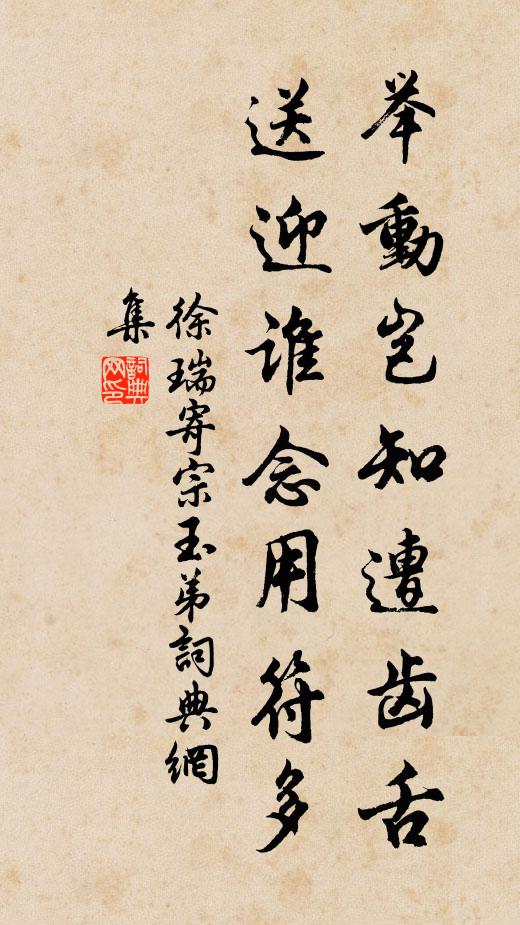 举動岂知遭齿舌
送迎谁念用符多
徐瑞寄宗玉弟詞典網
集
詞典
网印